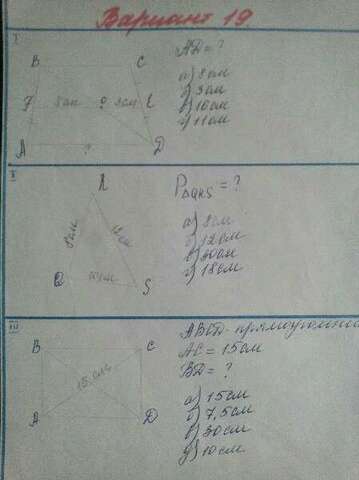 Вариант 19.
I
B C
AD = ?
а) 8 см
б) 9 см
в) 10 см
г) 11 см
F 8 см ? 3 см E
A ? D
II
R
8 см 12 см
Q 10 см S
P△QRS = ?
а) 8 см
б) 12 см
в) 30 см
г) 18 см
III
B C
15 см
A D
ABCD - прямоугольник
AC = 15 см
BD = ?
а) 15 см
б) 7,5 см
в) 30 см
г) 10 см